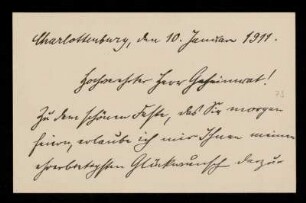 Charlottenburg, den 10. Januar 1911.
Hochverehrter Herr Geheimrat!
Zu dem schönen Feste, das Sie morgen
feiern, erlaube ich mir Ihnen meinen
ehrerbietigsten Glückwunsch darzu-